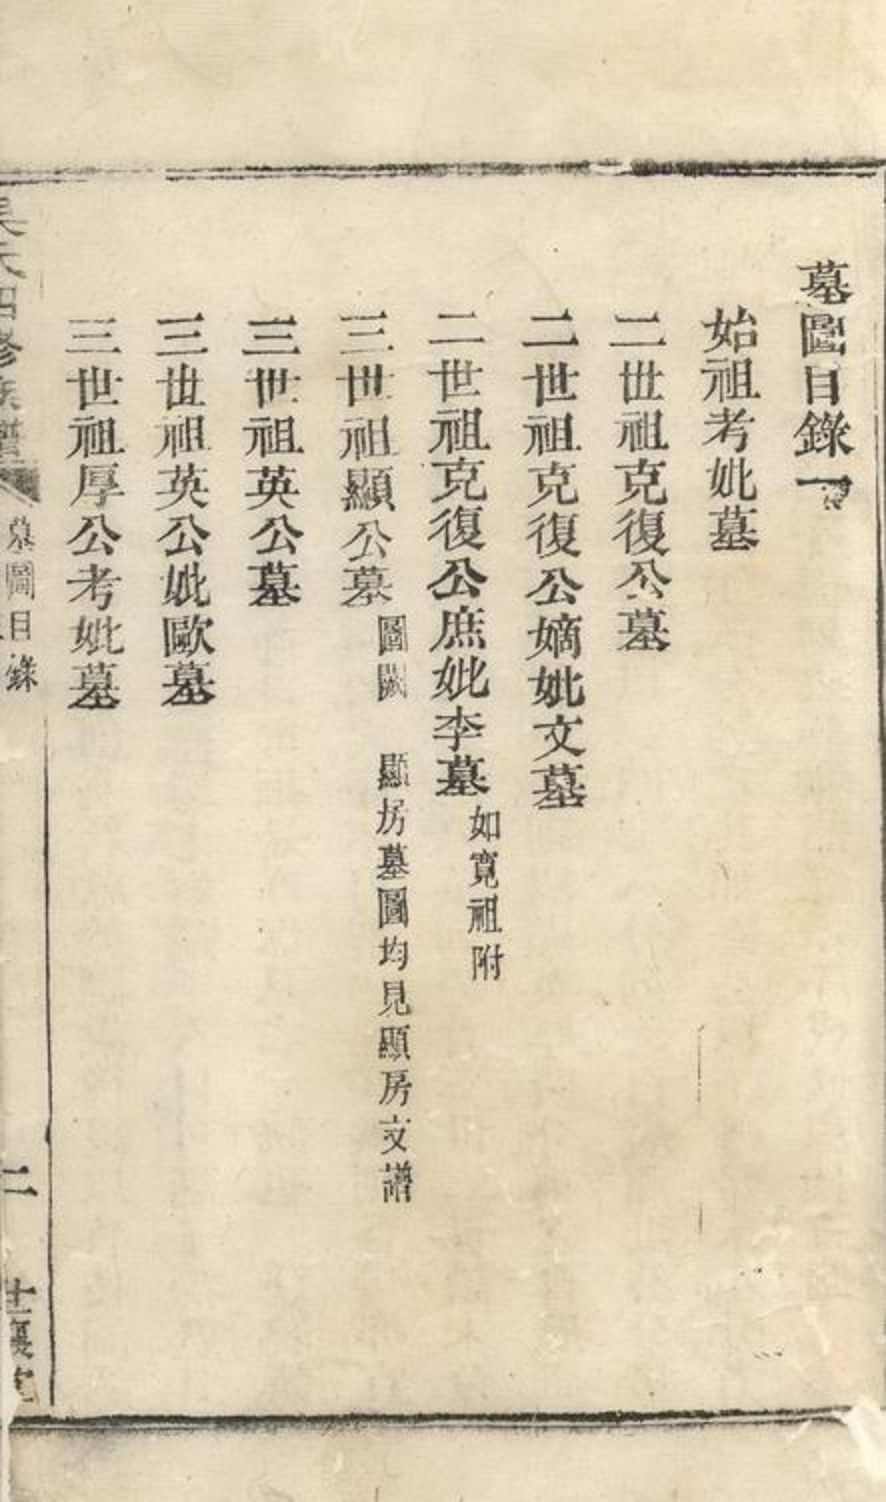 墓圖目錄一
始祖考妣墓
二世祖克復公墓
二世祖克復公嫡妣文墓
二世祖克復公庶妣李墓 如寬祖附
三世祖顯公墓 圖闕 顯房墓圖均見顯房支譜
三世祖英公墓
三世祖英公妣歐墓
三世祖厚公考妣墓
氏四修族譜 墓圖目錄 二